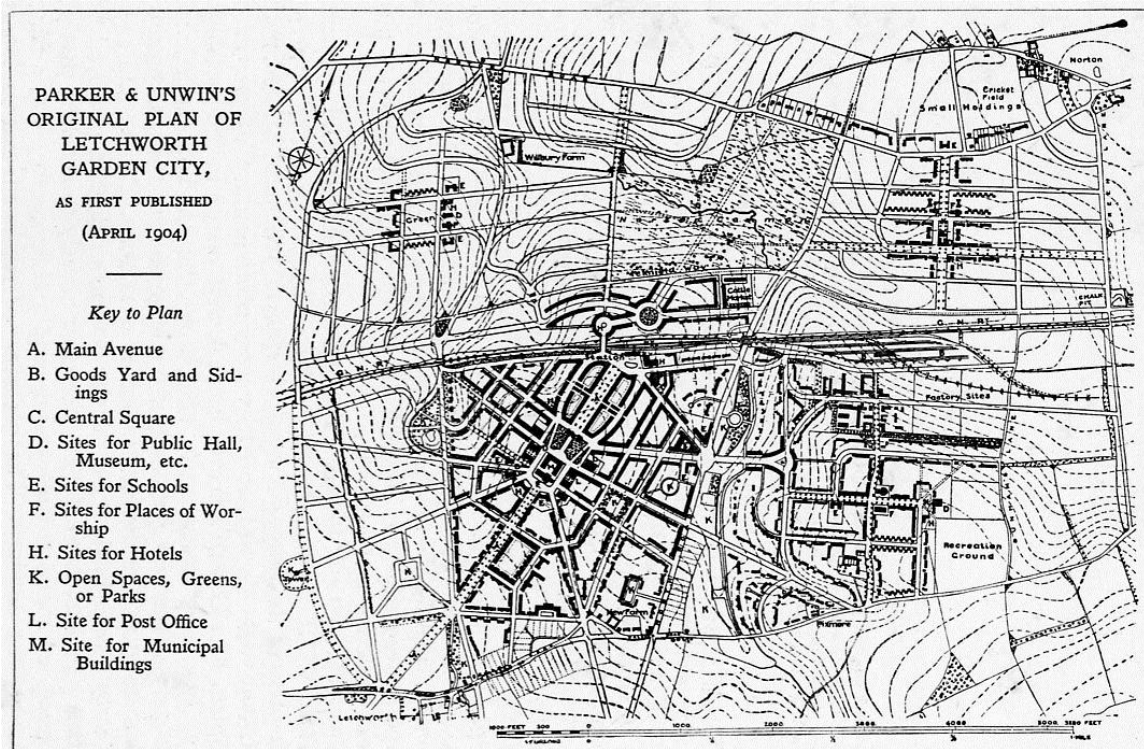 PARKER & UNWIN'S
ORIGINAL PLAN OF
LETCHWORTH
GARDEN CITY,
AS FIRST PUBLISHED
(APRIL 1904)
Key to Plan
A. Main Avenue
B. Goods Yard and Sid-
ings
C. Central Square
D. Sites for Public Hall,
Museum, etc.
E. Sites for Schools
F. Sites for Places of Wor-
ship
H. Sites for Hotels
K. Open Spaces, Greens,
or Parks
L. Site for Post Office
M. Site for Municipal
Buildings
Norton
Cricket
Field
Small Holdings
Wilbury Farm
Green
Cattle
Market
CHALK
PIT
Station
Factory Sites
Recreation
Ground
New Farm
Pixmore
Letchworth
1000 FEET 500 0 1000 2000 3000 4000 5000 5280 FEET
1 MILE